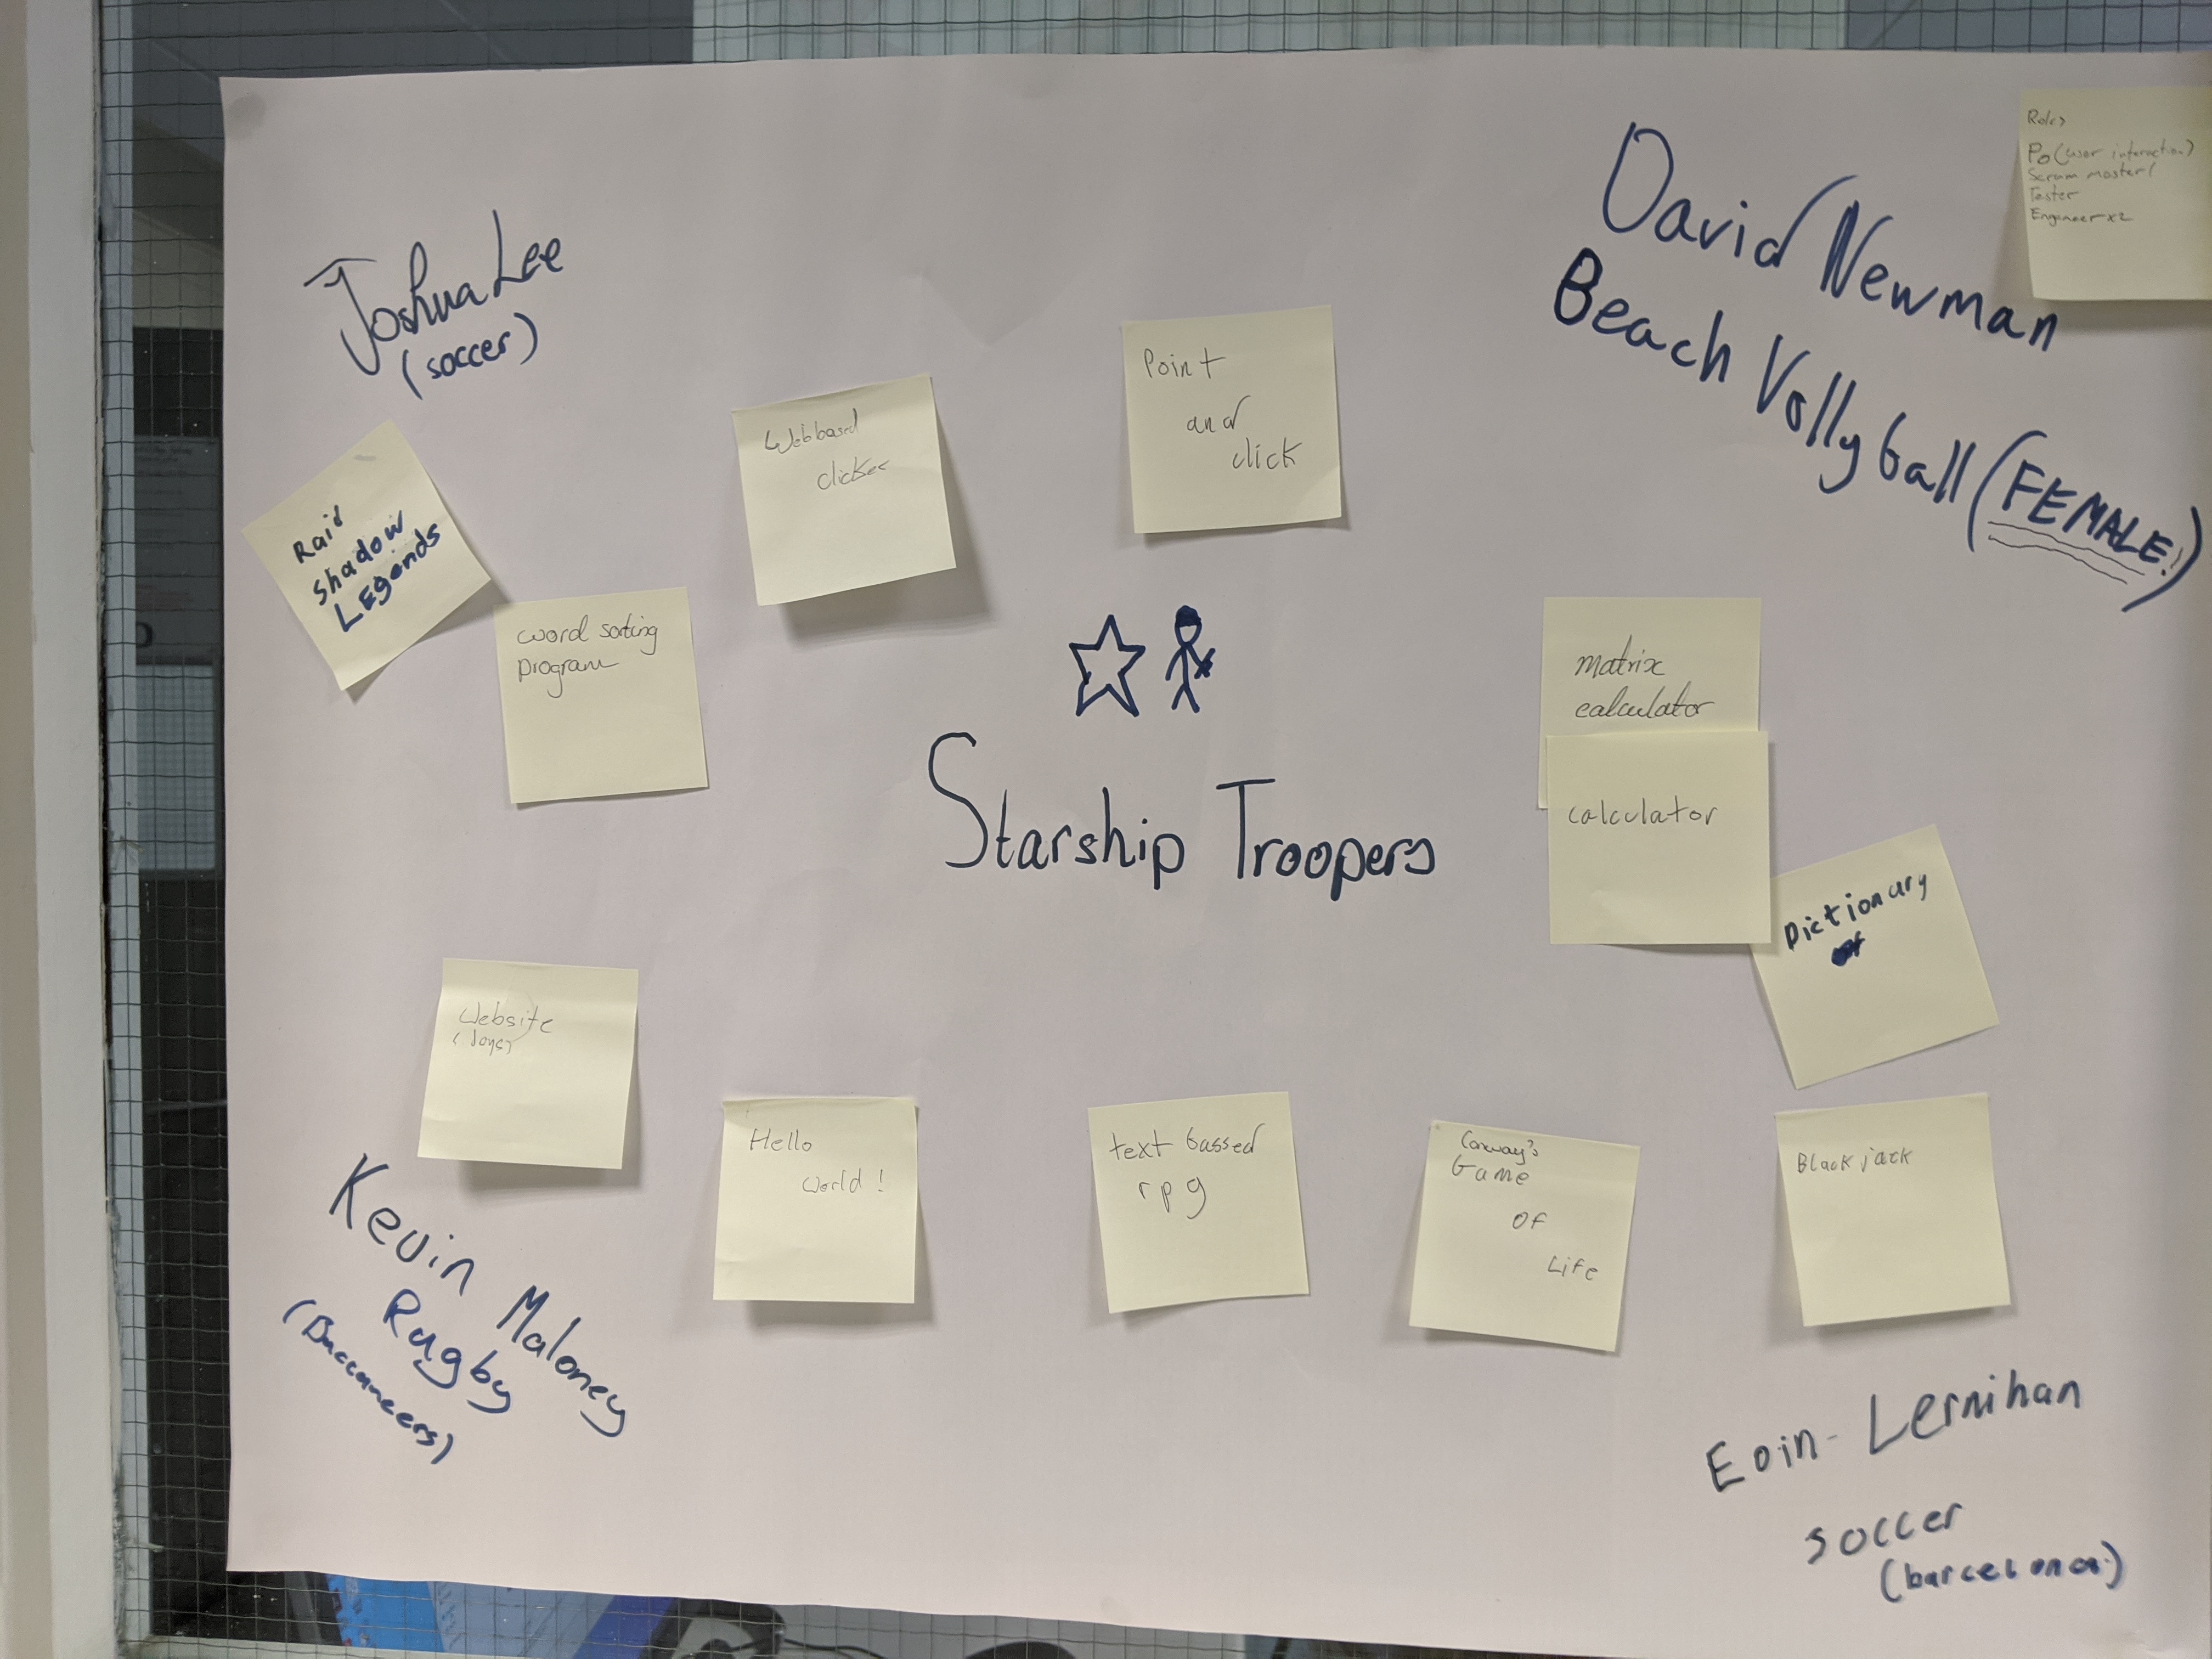 Joshua Lee
(soccer)
David Newman
Beach Vollyball (FEMALE!)
Roles
Po (user interaction)
Scrum master/
Tester
Engeneer x2
Point
and
click
Webbased
clicker
Raid
Shadow
LEgends
word sorting
program
Starship Troopers
matrix
calculator
calculator
Dictionary
Website
Hello
World!
text bassed
rpg
Conway's
Game
OF
Life
Black jack
Kevin Maloney
Rugby
(Buccaneers)
Eoin - Lernihan
soccer
(barcelona)